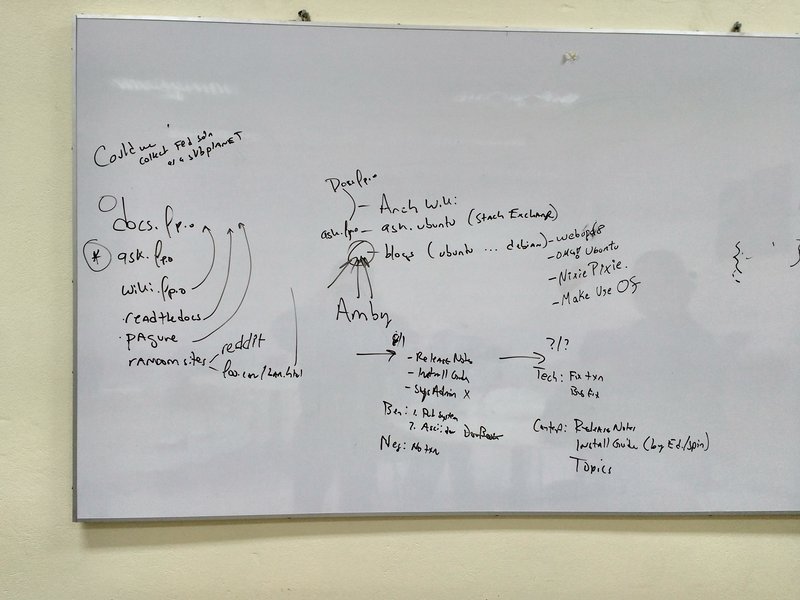 Could we
collect Fed soln
as a subplanet
docs.fp.o
* ask.fp.o
wiki.fp.o
. readthedocs
. pagure
random sites
reddit
foo.com/bar.html
Docs.fp.o
- Arch Wiki:
ask.fp.o - ask.ubuntu (Stack Exchange)
- blogs (ubuntu ... debian)
- webupd8
- OMG! Ubuntu
- NixiePixie.
- Make Use Of
Amby
- Release Notes
- Install Guide
- SysAdmin X
Ben: 1. Pub System
2. Asciidoc DocBook
Neg: No txn
?/?
Tech: Fix txn
Bug Fix
Content: Release Notes
Install Guide (by Ed./Spin)
Topics